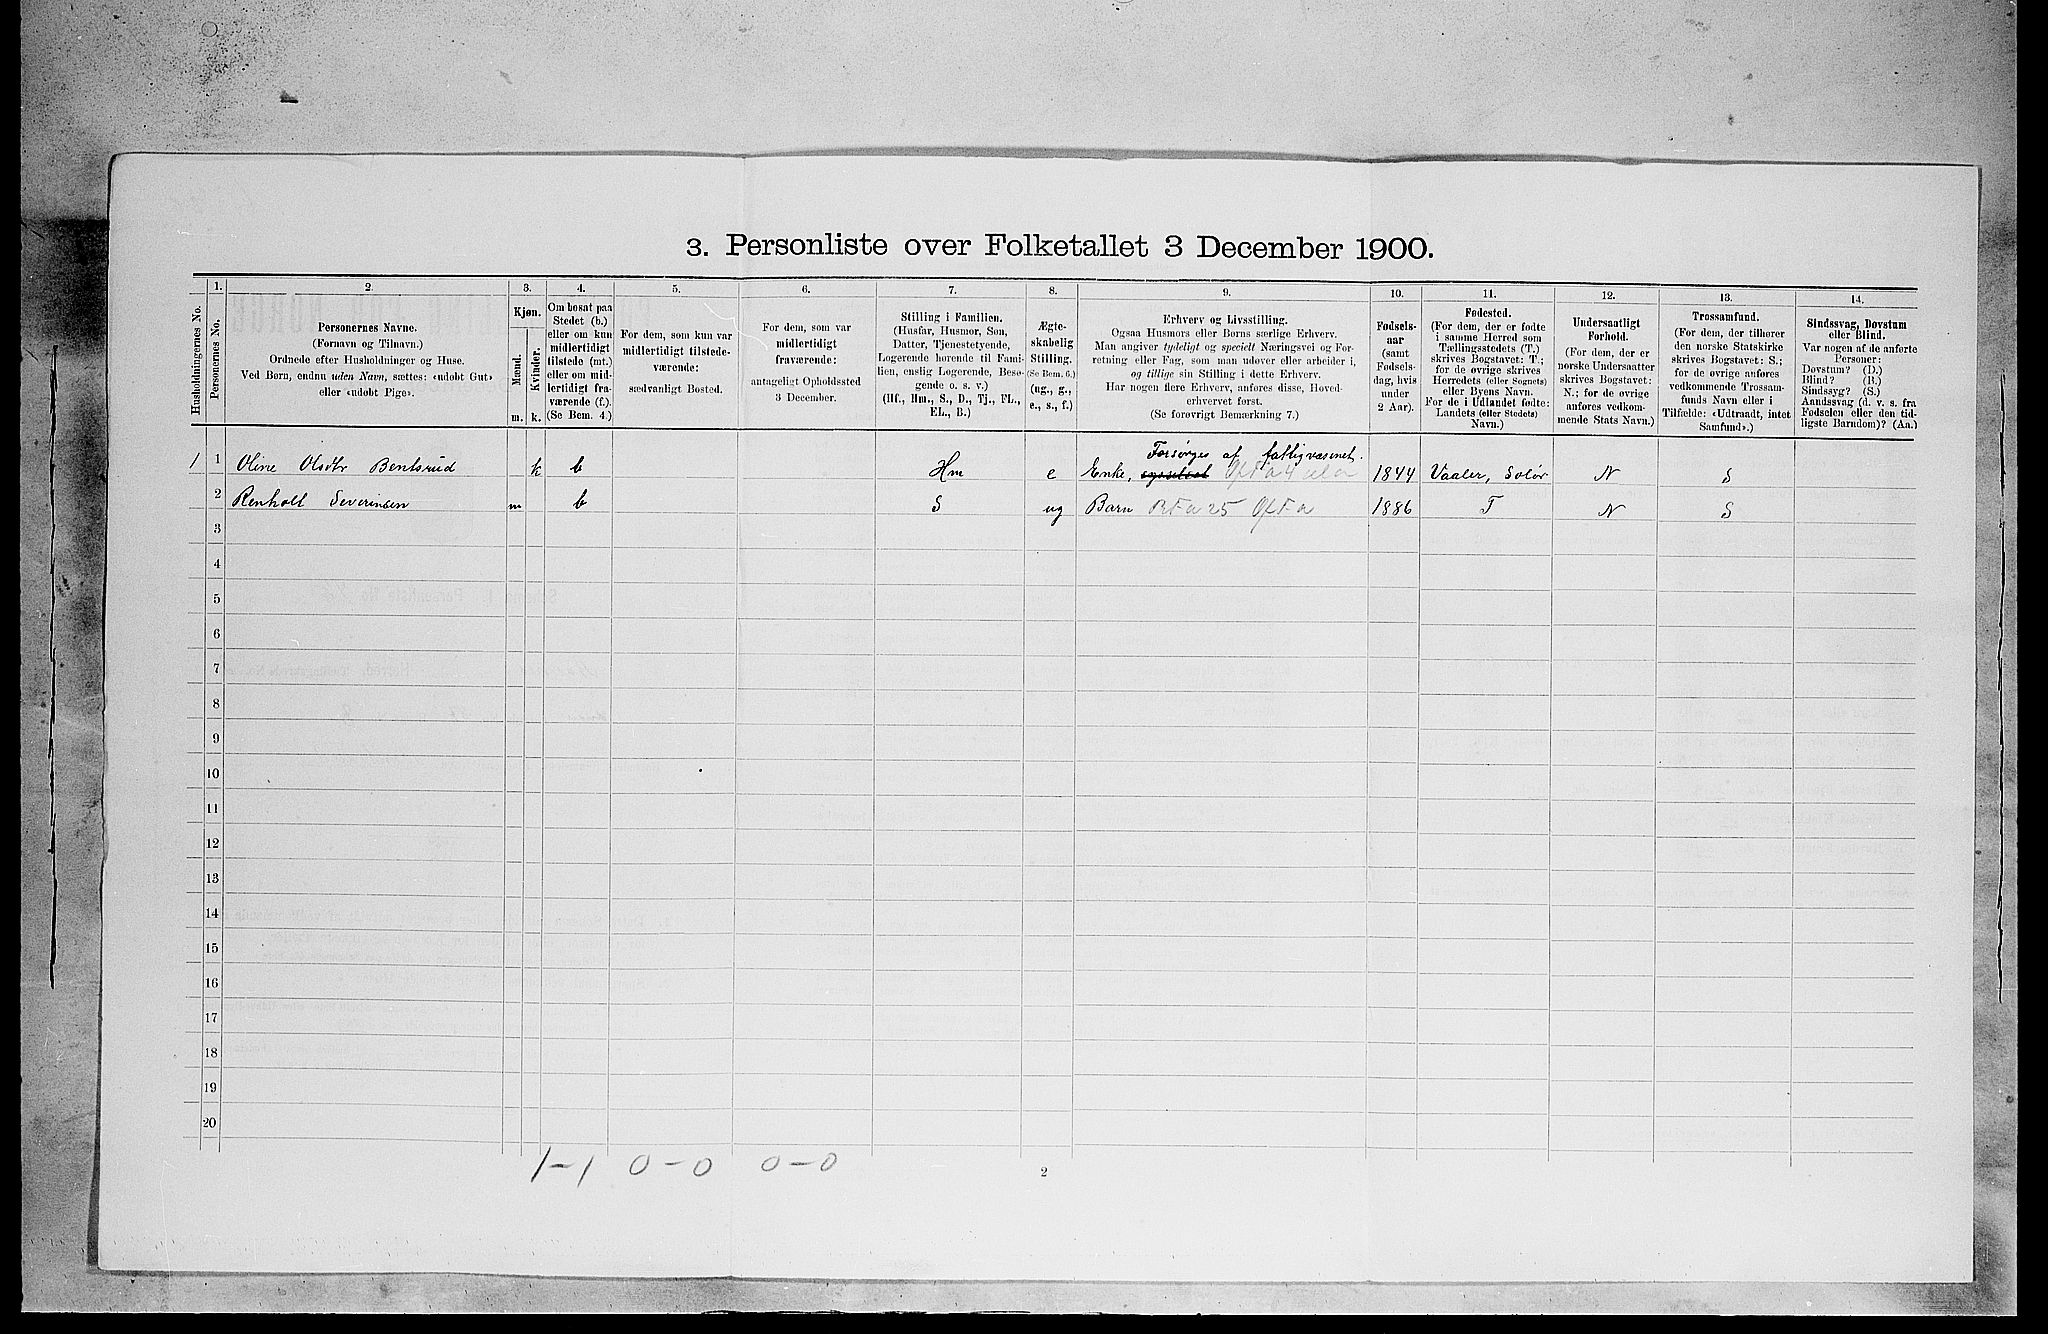 3. Personliste over Folketallet 3 December 1900.
Husholdningernes No.
1.
Personernes No.
2.
Personernes Navne.
(Fornavn og Tilnavn.)
Ordnede efter Husholdninger og Huse.
Ved Børn, endnu uden Navn, sættes: «udøbt Gut»
eller «udøbt Pige».
3.
Kjøn.
Mænd.
Kvinder.
m.
k.
4.
Om bosat paa
Stedet (b.)
eller om kun
midlertidigt
tilstede (mt.)
eller om mid-
lertidigt fra-
værende (f.).
(Se Bem. 4.)
5.
For dem, som kun var
midlertidigt tilstede-
værende:
sædvanligt Bosted.
6.
For dem, som var
midlertidigt
fraværende:
antageligt Opholdssted
3 December.
7.
Stilling i Familien.
(Husfar, Husmor, Søn,
Datter, Tjenestetyende,
Logerende hørende til Fami-
lien, enslig Logerende, Besø-
gende o. s. v.)
(Hf., Hm., S., D., Tj., FL.,
EL., B.)
8.
Ægte-
skabelig
Stilling.
(Se Bem. 6.)
(ug., g.,
e., s., f.)
9.
Erhverv og Livsstilling.
Ogsaa Husmors eller Børns særlige Erhverv.
Man angiver tydeligt og specielt Næringsvei og For-
retning eller Fag, som man udøver eller arbeider i,
og tillige sin Stilling i dette Erhverv.
Har nogen flere Erhverv, anføres disse, Hoved-
erhvervet først.
(Se forøvrigt Bemærkning 7.)
10.
Fødsels-
aar
(samt
Fødsels-
dag, hvis
under
2 Aar).
11.
Fødested.
(For dem, der er fødte
i samme Herred som
Tællingsstedets (T.)
skrives Bogstavet: T.;
for de øvrige skrives
Herredets (eller Sognets)
eller Byens Navn.
For de i Udlandet fødte:
Landets (eller Stedets)
Navn.)
12.
Undersaatligt
Forhold.
(For dem, der er
norske Undersaatter
skrives Bogstavet:
N.; for de øvrige
anføres vedkom-
mende Stats Navn.)
13.
Trossamfund.
(For dem, der tilhører
den norske Statskirke
skrives Bogstavet: S.;
for de øvrige anføres
vedkommende Trossam-
funds Navn eller i
Tilfælde: «Udtraadt, intet
Samfund».)
14.
Sindssvag, Døvstum
eller Blind.
Var nogen af de anførte
Personer:
Døvstum? (D.)
Blind? (B.)
Sindssyg? (S.)
Aandssvag (d. v. s. fra
Fødselen eller den tid-
ligste Barndom)? (Aa.)
Forsørges af fattigvæsenet.
1 1 Oline Olsdtr Bentsrud k b Hm e Enke, 1844 Vaaler, Solør N S
2 Renholt Severinsen m b S ug Barn 1886 T N S
3
4
5
6
7
8
9
10
11
12
13
14
15
16
17
18
19
20
1-1 0-0 0-0
2